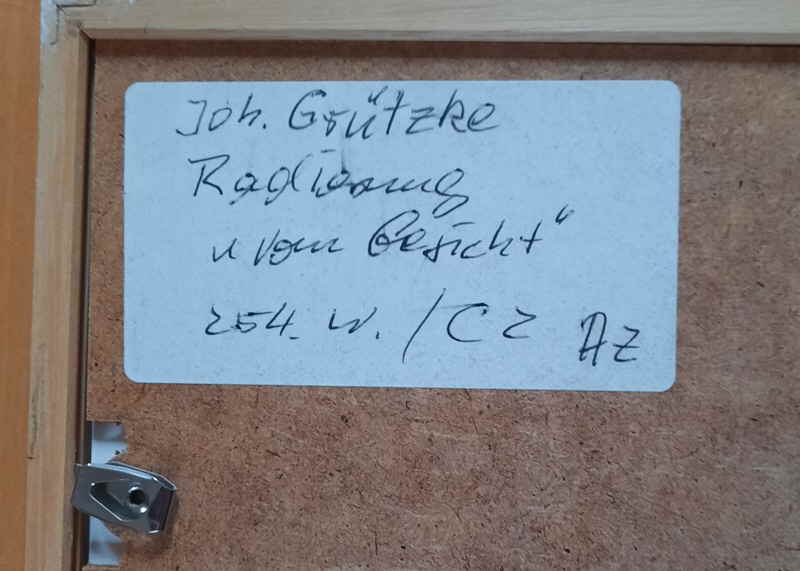 Joh. Grützke
Radierung
„vom Gesicht"
254. W. / C2 AZ